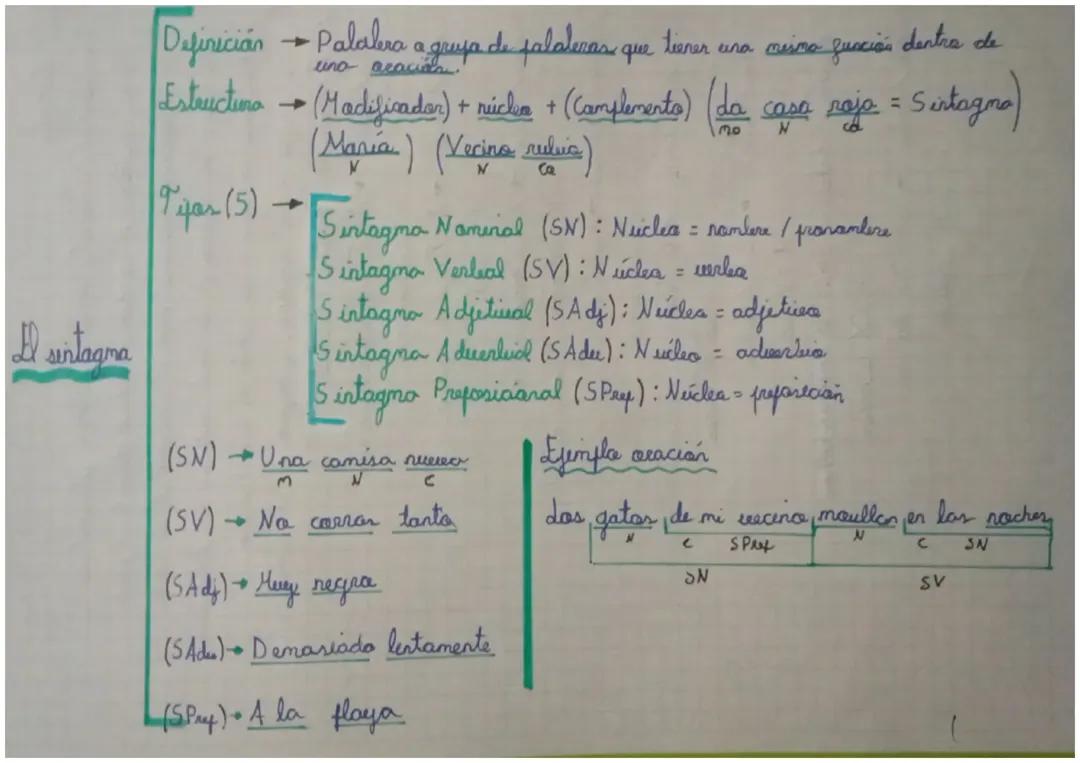 El sintagma
Definición → Palabra o grupo de palabras que tienen una misma función dentro de
una oración.
Estructura → (Modificador) + núcleo + (Complemento) (La casa roja = Sintagma)
mo N cd
(María) (Vecino rubio)
N N Co
Tipos (5) →
Sintagma Nominal (SN): Núcleo = nombre / pronombre
Sintagma Verbal (SV): Núcleo = verbo
Sintagma Adjetival (SAdj): Núcleo = adjetivo
Sintagma Adverbial (SAdv): Núcleo = adverbio
Sintagma Preposicional (SPrep): Núcleo = preposición
(SN) → Una camisa nueva
M N C
(SV) → No corras tanto
(SAdj) → Muy negra
(SAdv) → Demasiado lentamente
(SPrep) → A la playa
Ejemplo oración
Los gatos de mi vecino maullan en las noches
N C SPrep N C SN
SN SV